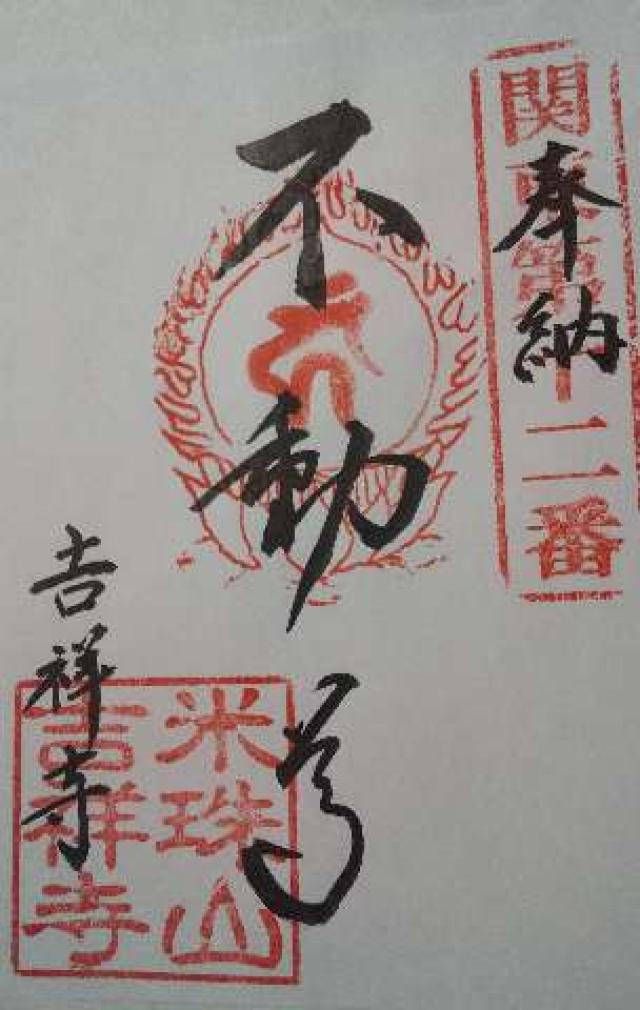 奉納
関東
十二番
不動尊
吉祥寺
米珠山
吉祥寺